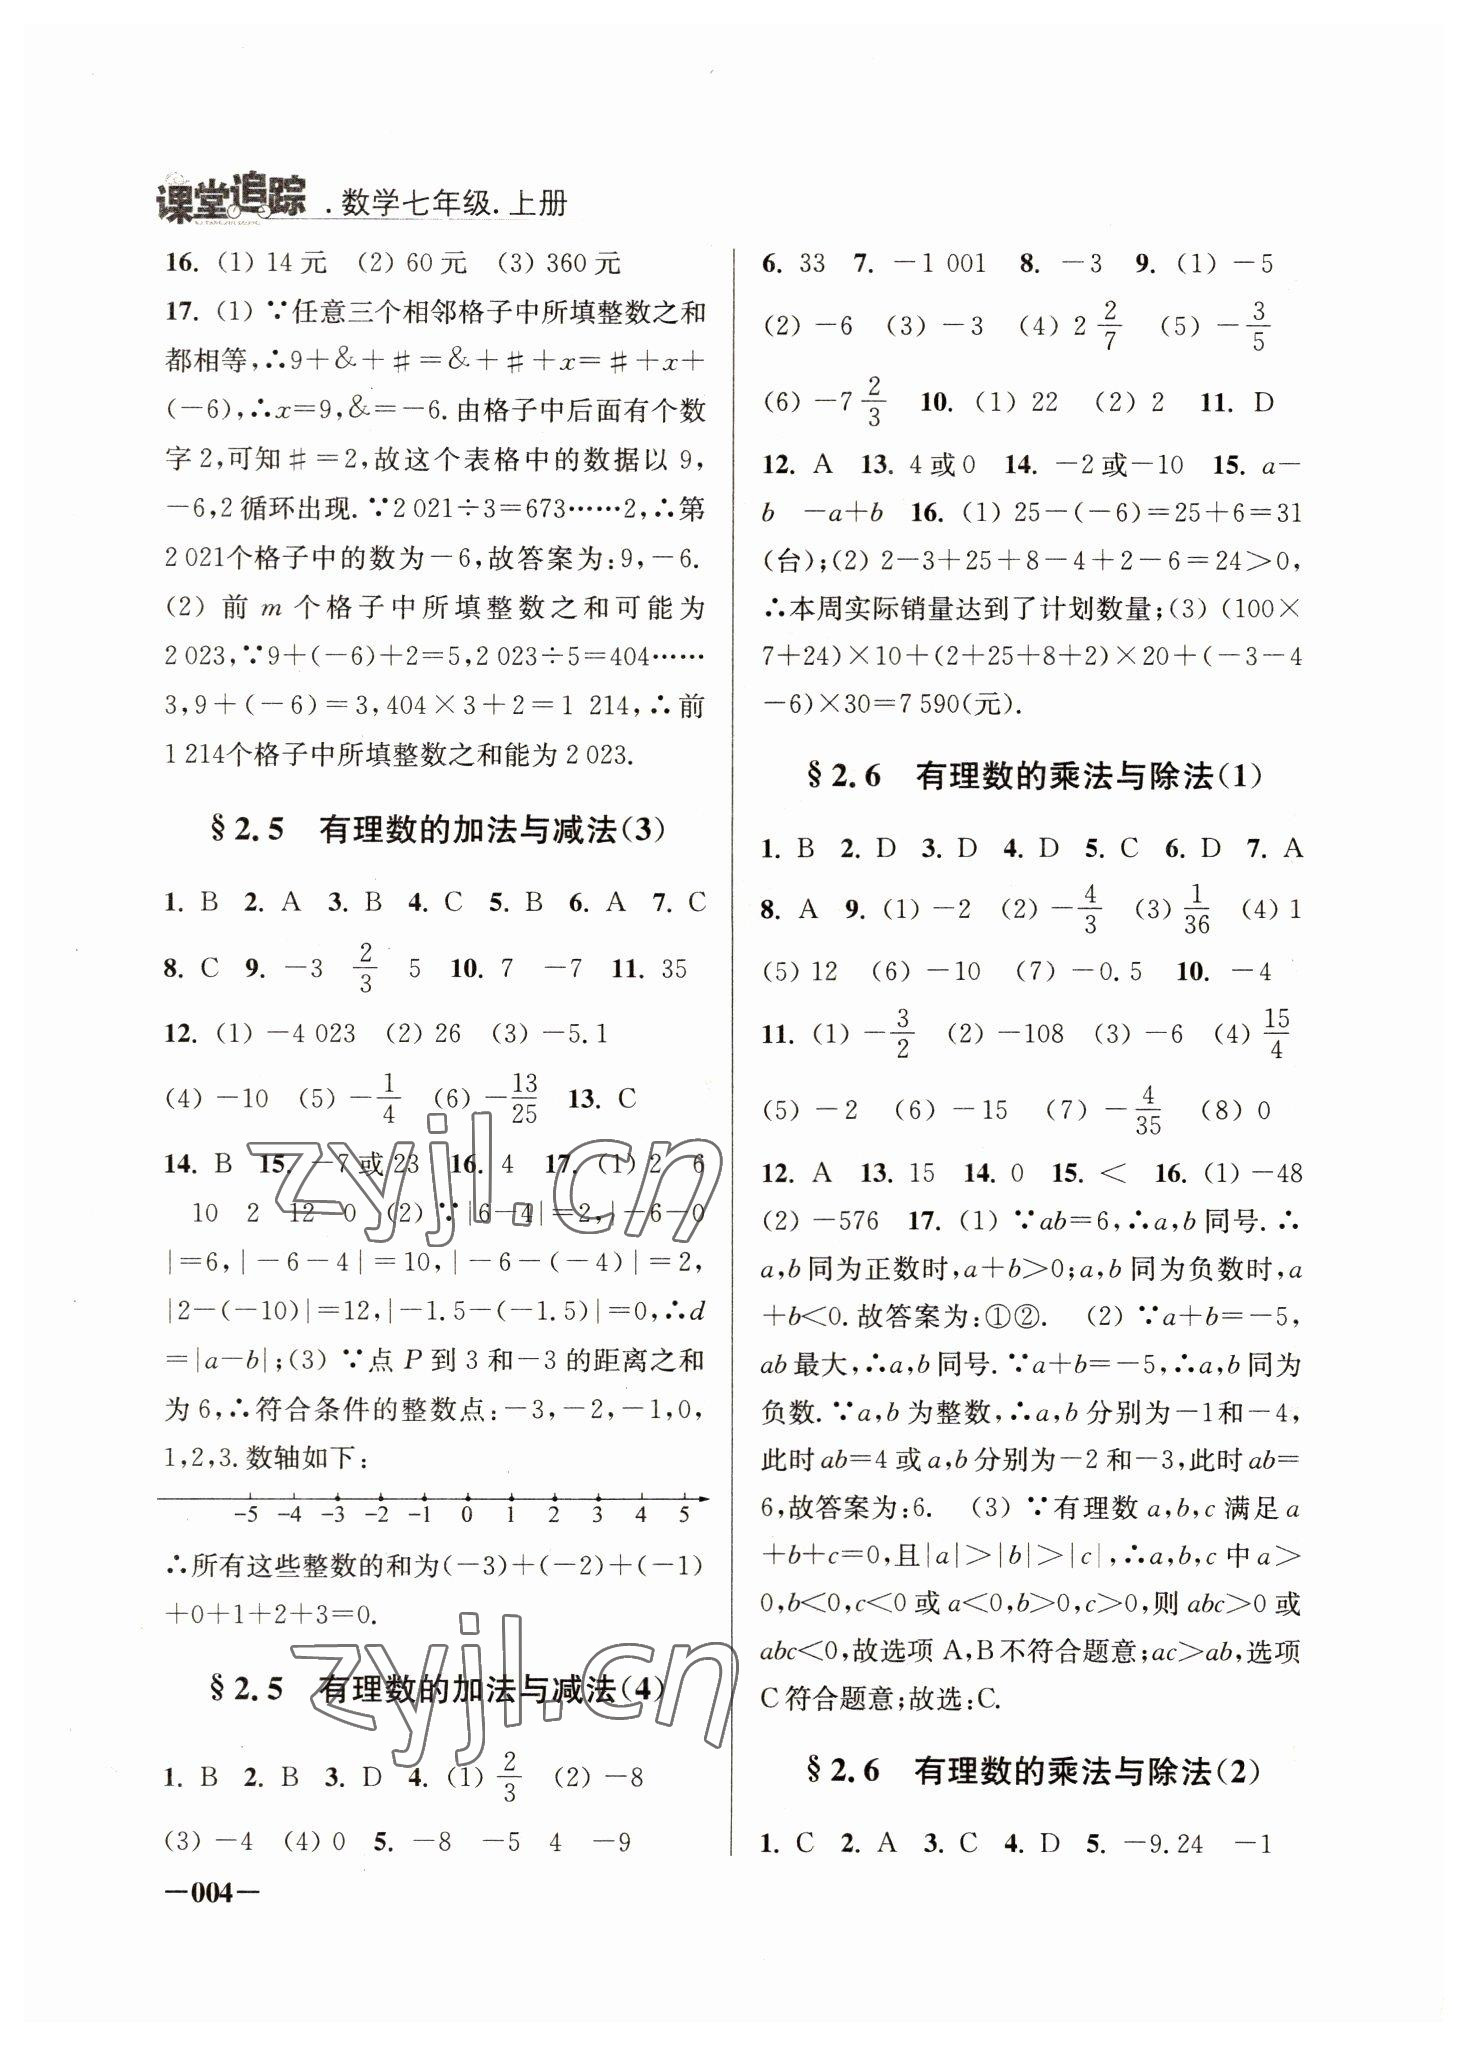 课堂追踪 . 数学七年级. 上册
16. (1) 14元 (2) 60元 (3) 360元
17. (1) ∵任意三个相邻格子中所填整数之和
都相等,∴9+&+♯=&+♯+x=♯+x+
(-6),∴x=9,&=-6. 由格子中后面有个数
字2,可知♯=2,故这个表格中的数据以9,
-6,2循环出现. ∵2 021÷3=673……2,∴第
2 021个格子中的数为-6,故答案为:9,-6.
(2) 前 m 个格子中所填整数之和可能为
2 023,∵9+(-6)+2=5,2 023÷5=404……
3,9+(-6)=3,404×3+2=1 214,∴前
1 214个格子中所填整数之和能为2 023.
§2.5 有理数的加法与减法(3)
1. B 2. A 3. B 4. C 5. B 6. A 7. C
8. C 9. -3 2/3 5 10. 7 -7 11. 35
12. (1) -4 023 (2) 26 (3) -5.1
(4) -10 (5) -1/4 (6) -13/25 13. C
14. B 15. -7或23 16. 4 17. (1) 2 6
10 2 12 0 (2) ∵|6-4|=2,|-6-0
|=6,|-6-4|=10,|-6-(-4)|=2,
|2-(-10)|=12,|-1.5-(-1.5)|=0,∴d
=|a-b|;(3) ∵点 P 到 3 和-3 的距离之和
为6,∴符合条件的整数点:-3,-2,-1,0,
1,2,3. 数轴如下:
-5 -4 -3 -2 -1 0 1 2 3 4 5
∴所有这些整数的和为(-3)+(-2)+(-1)
+0+1+2+3=0.
§2.5 有理数的加法与减法(4)
1. B 2. B 3. D 4. (1) 2/3 (2) -8
(3) -4 (4) 0 5. -8 -5 4 -9
-004-
6. 33 7. -1 001 8. -3 9. (1) -5
(2) -6 (3) -3 (4) 2 2/7 (5) -3/5
(6) -7 2/3 10. (1) 22 (2) 2 11. D
12. A 13. 4或0 14. -2或-10 15. a-
b -a+b 16. (1) 25-(-6)=25+6=31
(台);(2) 2-3+25+8-4+2-6=24>0,
∴本周实际销量达到了计划数量;(3) (100×
7+24)×10+(2+25+8+2)×20+(-3-4
-6)×30=7 590(元).
§2.6 有理数的乘法与除法(1)
1. B 2. D 3. D 4. D 5. C 6. D 7. A
8. A 9. (1) -2 (2) -4/3 (3) 1/36 (4) 1
(5) 12 (6) -10 (7) -0.5 10. -4
11. (1) -3/2 (2) -108 (3) -6 (4) 15/4
(5) -2 (6) -15 (7) -4/35 (8) 0
12. A 13. 15 14. 0 15. < 16. (1) -48
(2) -576 17. (1) ∵ab=6,∴a,b同号. ∴
a,b同为正数时,a+b>0;a,b同为负数时,a
+b<0. 故答案为:①②. (2) ∵a+b=-5,
ab最大,∴a,b同号. ∵a+b=-5,∴a,b同为
负数. ∵a,b为整数,∴a,b分别为-1和-4,
此时ab=4或a,b分别为-2和-3,此时ab=
6,故答案为:6. (3) ∵有理数a,b,c满足a
+b+c=0,且|a|>|b|>|c|,∴a,b,c中a>
0,b<0,c<0或a<0,b>0,c>0,则abc>0或
abc<0,故选项A,B不符合题意;ac>ab,选项
C符合题意;故选:C.
§2.6 有理数的乘法与除法(2)
1. C 2. A 3. C 4. D 5. -9.24 -1
zyjl.cn
zyjl.cn